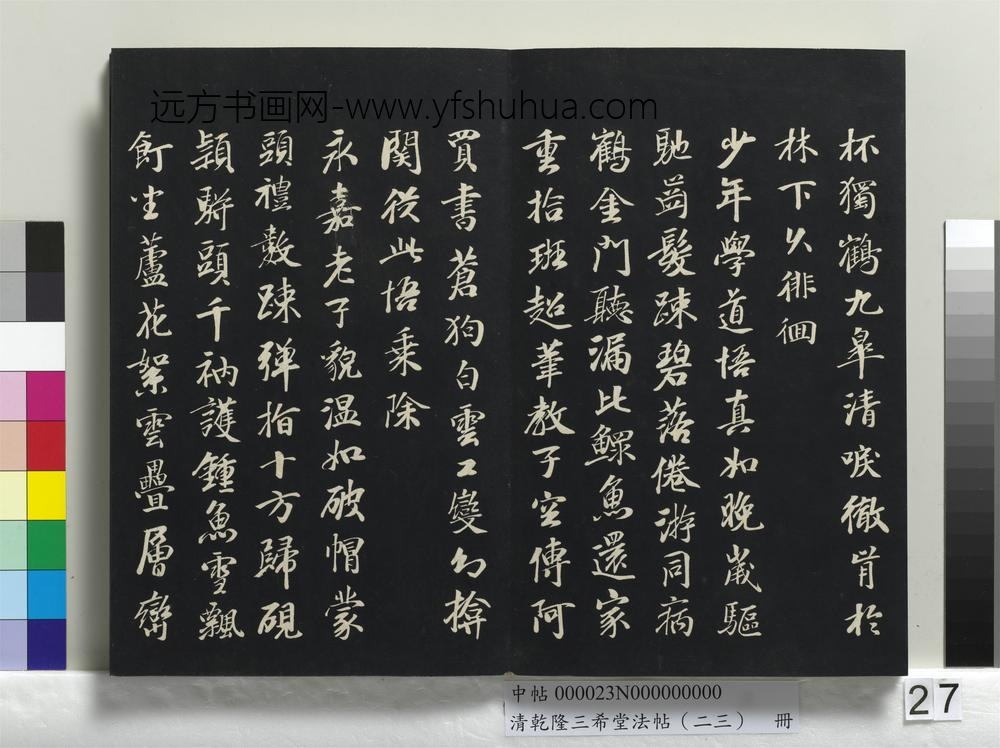 远方书画网-www.yfshuhua.com
杯獨鶴九臯清唳徹肯於
林下久徘徊
少年學道悟真如晚歲驅
馳齒髮疎碧落倦游同病
鶴金門聽漏比鰥魚還家
重拾班超筆教子空傳阿
買書蒼狗白雲工變幻揜
関從此悟乗除
永嘉老子貌温如破帽蒙
頭禮數疎彈指十方歸硯
頴騈頭千衲護鍾魚雪飄
飣坐蘆花絮雲疊層巒
中帖 000023N000000000
清乾隆三希堂法帖（二三） 冊
27